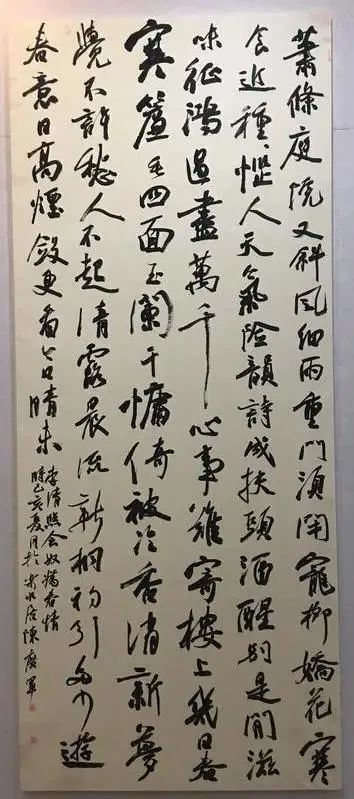 蕭條庭院又斜風細雨重門須閉寵柳嬌花寒
食近種種惱人天氣險韻詩成扶頭酒醒別是閒滋
味征鴻過盡萬千心事難寄樓上幾日春
寒簾垂四面玉闌干慵倚被冷香消新夢
覺不許愁人不起清露晨流新桐初引多少遊
春意日高煙斂更看今日晴未
李清照念奴嬌春情
時己亥夏月於水居陳慶軍